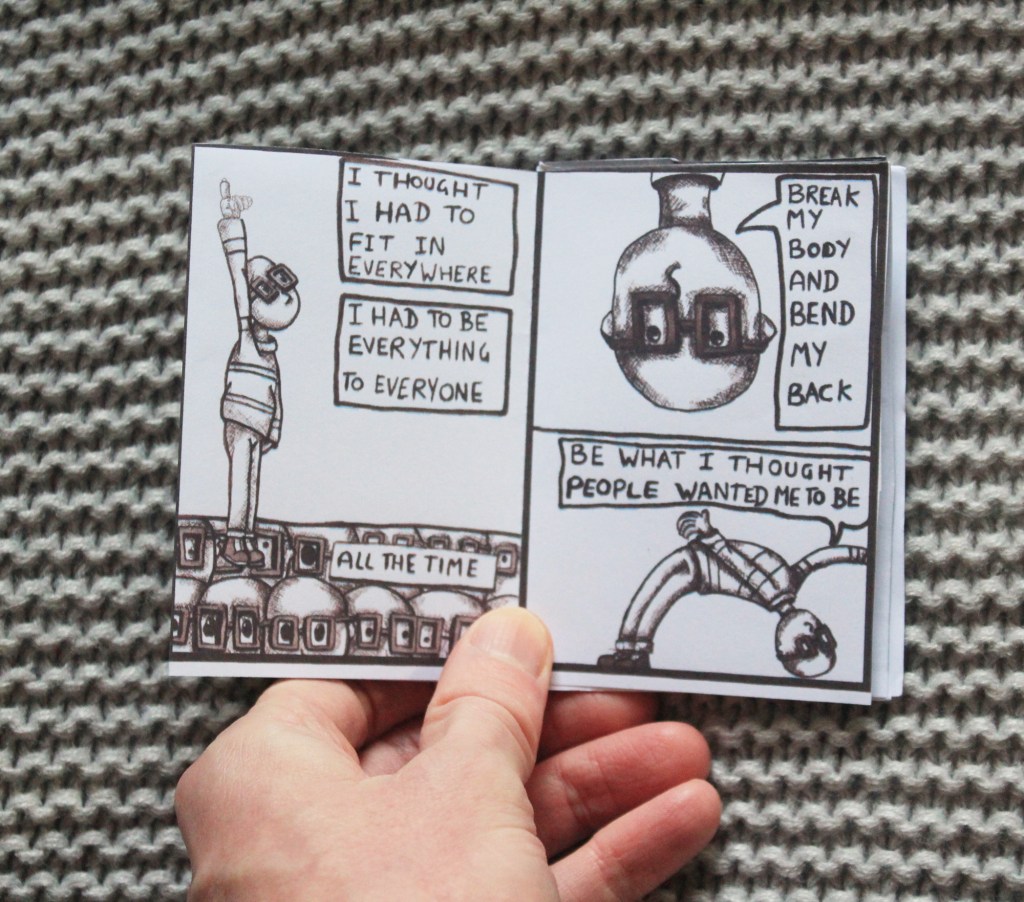 I THOUGHT
I HAD TO
FIT IN
EVERYWHERE
I HAD TO BE
EVERYTHING
TO EVERYONE
ALL THE TIME
BREAK
MY
BODY
AND
BEND
MY
BACK
BE WHAT I THOUGHT
PEOPLE WANTED ME TO BE